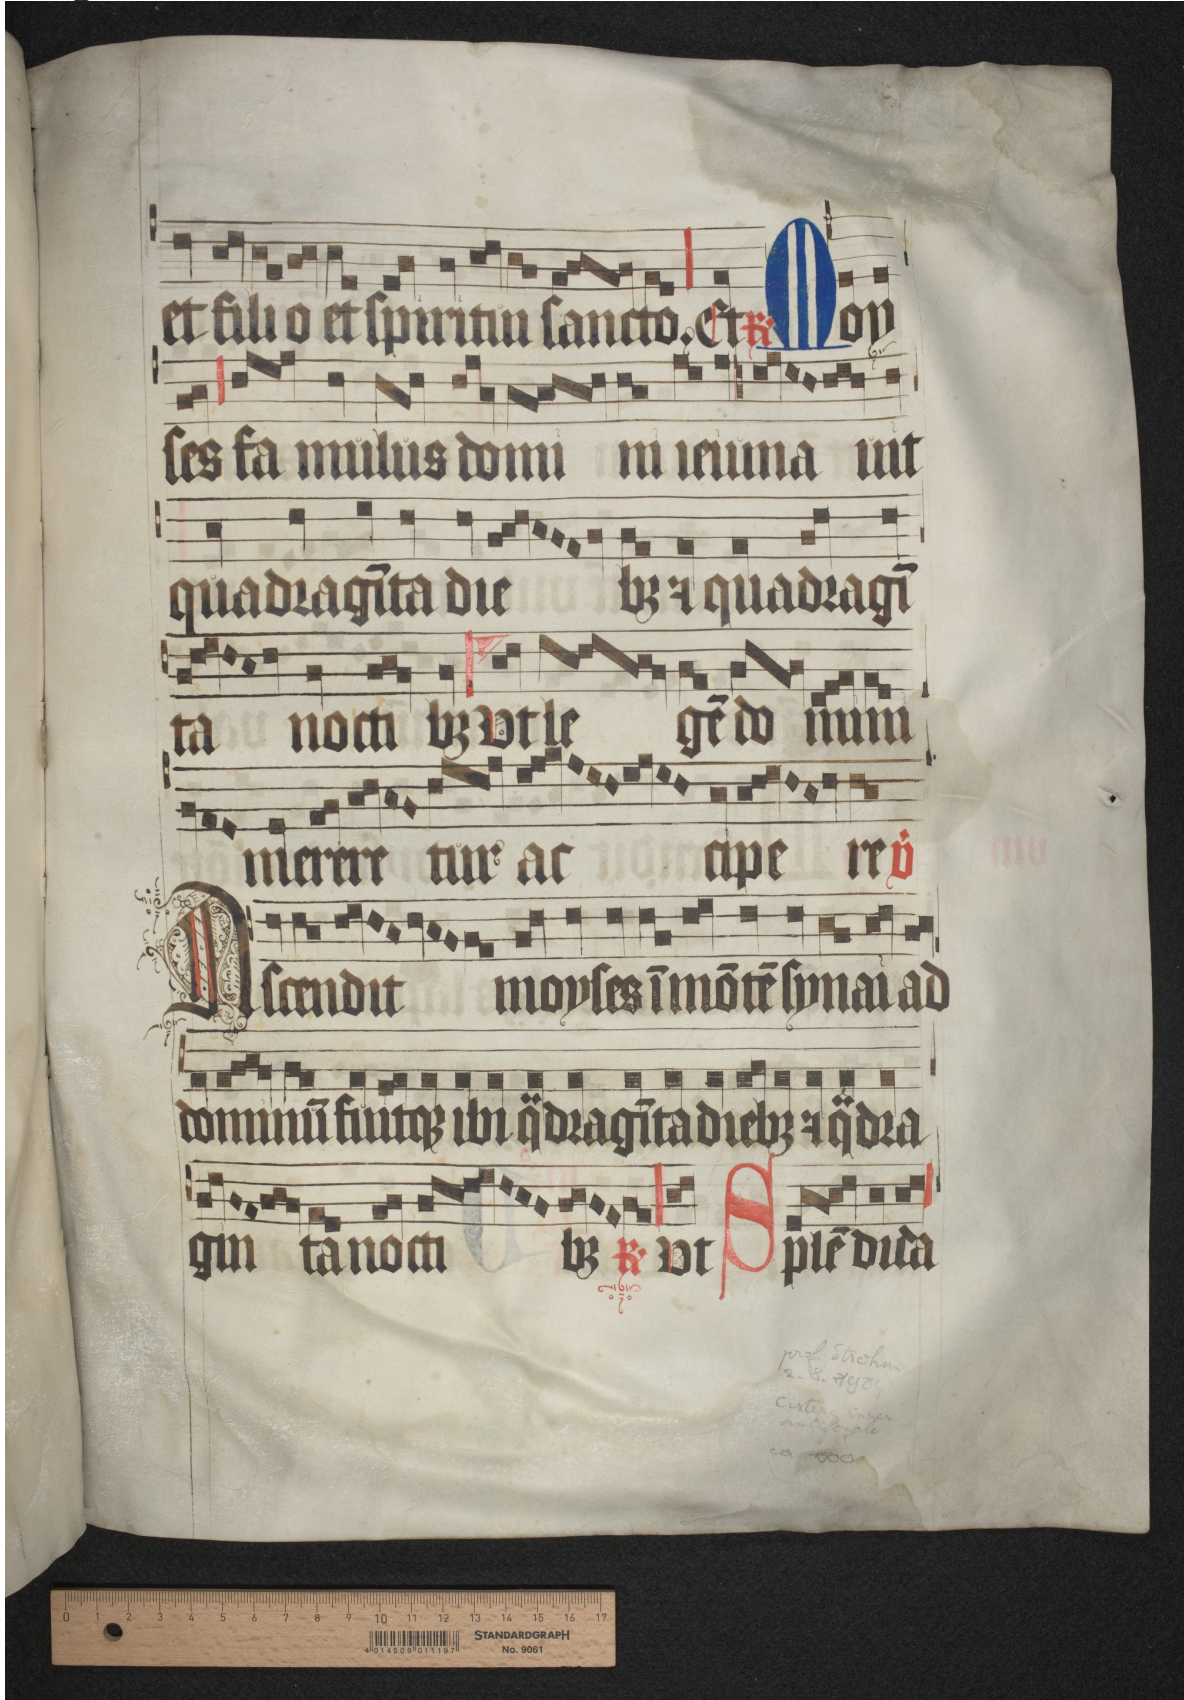 et filio et spiritui sancto. Et R Moy
ses famulus domi ni ieiuna uit
quadragīta die bꝫ ⁊ quadragī
ta nocti bꝫ vt le gē do num
merere tur ac cipe re v̄
Ascendit moyses ī mōtē synai ad
dominū fuitqꝫ ibi q̈dragīta diebꝫ ⁊ q̈dra
gin ta nocti bꝫ R vt Splēdida
prof. Strohm
2-8-
ca
0 1 2 3 4 5 6 7 8 9 10 11 12 13 14 15 16 17
4 014509 011197
STANDARDGRAPH
No. 9061